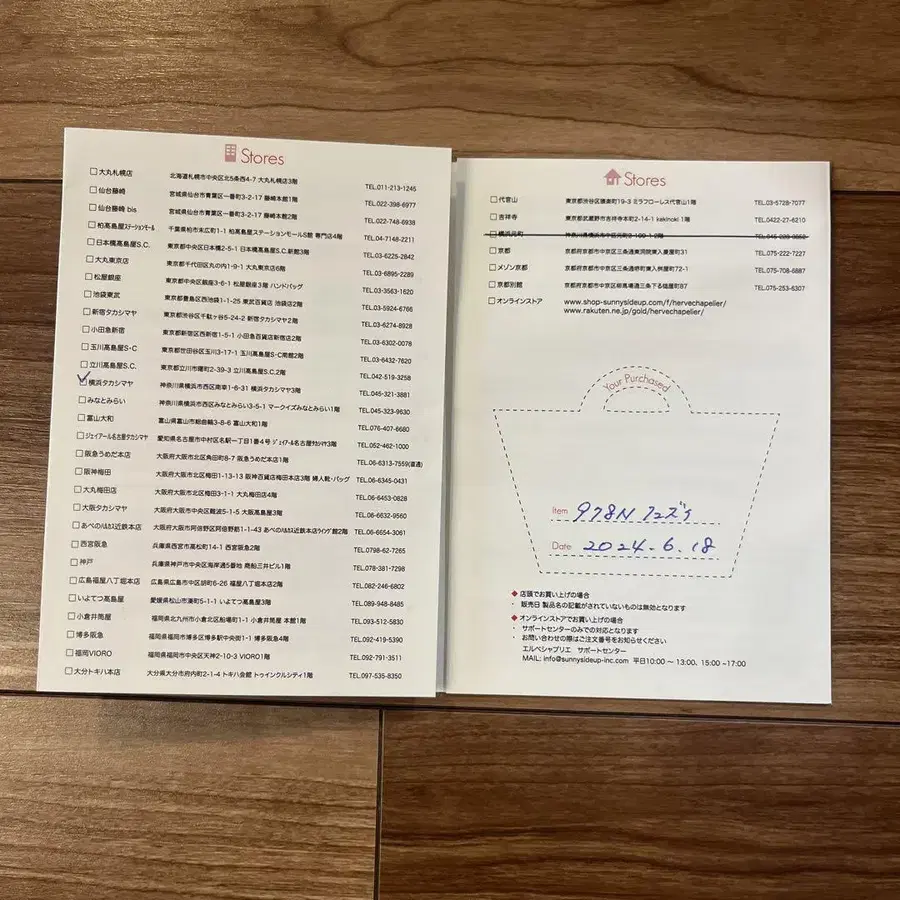 Stores
大丸札幌店 北海道札幌市中央区北5条西4-7 大丸札幌店3階 TEL.011-213-1245
仙台藤崎 宮城県仙台市青葉区一番町3-2-17 藤崎本館1階 TEL.022-398-6977
仙台藤崎 bis 宮城県仙台市青葉区一番町3-2-17 藤崎本館2階 TEL.022-748-6938
柏髙島屋ｽﾃｰｼｮﾝﾓｰﾙ 千葉県柏市末広町1-1 柏髙島屋ステーションモールS館 専門店4階 TEL.04-7148-2211
日本橋髙島屋S.C. 東京都中央区日本橋2-5-1 日本橋髙島屋S.C.新館3階 TEL.03-6225-2842
大丸東京店 東京都千代田区丸の内1-9-1 大丸東京店6階 TEL.03-6895-2289
松屋銀座 東京都中央区銀座3-6-1 松屋銀座3階 ハンドバッグ TEL.03-3563-1620
池袋東武 東京都豊島区西池袋1-1-25 東武百貨店 池袋店2階 TEL.03-5924-6766
新宿タカシマヤ 東京都渋谷区千駄ヶ谷5-24-2 新宿タカシマヤ2階 TEL.03-6274-8928
小田急新宿 東京都新宿区西新宿1-5-1 小田急百貨店新宿店2階 TEL.03-6302-0078
玉川髙島屋S・C 東京都世田谷区玉川3-17-1 玉川髙島屋S・C南館2階 TEL.03-6432-7620
立川髙島屋S.C. 東京都立川市曙町2-39-3 立川髙島屋S.C.2階 TEL.042-519-3258
横浜タカシマヤ 神奈川県横浜市西区南幸1-6-31 横浜タカシマヤ3階 TEL.045-321-3881
みなとみらい 神奈川県横浜市西区みなとみらい3-5-1 マークイズみなとみらい1階 TEL.045-323-9630
富山大和 富山県富山市総曲輪3-8-6 富山大和1階 TEL.076-407-6680
ｼﾞｪｲｱｰﾙ名古屋タカシマヤ 愛知県名古屋市中村区名駅一丁目1番4号 ｼﾞｪｲｱｰﾙ名古屋ﾀｶｼﾏﾔ3階 TEL.052-462-1000
阪急うめだ本店 大阪府大阪市北区角田町8-7 阪急うめだ本店1階 TEL.06-6313-7559(直通)
阪神梅田 大阪府大阪市北区梅田1-13-13 阪神百貨店梅田本店3階 婦人靴・バッグ TEL.06-6345-0431
大丸梅田店 大阪府大阪市北区梅田3-1-1 大丸梅田店4階 TEL.06-6453-0828
大阪タカシマヤ 大阪府大阪市中央区難波5-1-5 大阪髙島屋3階 TEL.06-6632-9560
あべのﾊﾙｶｽ近鉄本店 大阪府大阪市阿倍野区阿倍野筋1-1-43 あべのﾊﾙｶｽ近鉄本店ﾀﾜｰ館2階 TEL.06-6654-3061
西宮阪急 兵庫県西宮市高松町14-1 西宮阪急2階 TEL.0798-62-7265
神戸 兵庫県神戸市中央区海岸通5番地 商船三井ビル1階 TEL.078-381-7298
広島福屋八丁堀本店 広島県広島市中区胡町6-26 福屋八丁堀本店2階 TEL.082-246-6802
いよてつ髙島屋 愛媛県松山市湊町5-1-1 いよてつ髙島屋3階 TEL.089-948-8485
小倉井筒屋 福岡県北九州市小倉北区船場町1-1 小倉井筒屋 本館1階 TEL.093-512-5830
博多阪急 福岡県福岡市博多区博多駅中央街1-1 博多阪急4階 TEL.092-419-5390
福岡VIORO 福岡県福岡市中央区天神2-10-3 VIORO1階 TEL.092-791-3511
大分トキハ本店 大分県大分市府内町2-1-4 トキハ会館 トゥインクルシティ1階 TEL.097-535-8350
Stores
代官山 東京都渋谷区猿楽町19-3 ミラフローレス代官山1階 TEL.03-5728-7077
吉祥寺 東京都武蔵野市吉祥寺本町2-14-1 kakinoki 1階 TEL.0422-27-6210
横浜元町 神奈川県横浜市中区元町
京都 京都府京都市中京区三条通東洞院東入菱屋町31 TEL.075-222-7227
メゾン京都 京都府京都市中京区三条通堺町東入桝屋町72-1 TEL.075-708-6887
京都別館 京都府京都市中京区柳馬場通三条下る槌屋町87 TEL.075-253-6307
オンラインストア www.shop-sunnysideup.com/f/hervechapelier/
www.rakuten.ne.jp/gold/hervechapelier/
Your Purchased
Item 978N フューズ1
Date 2024.6.18
◆ 店頭でお買い上げの場合
・ 販売日 製品名の記載がされていないものは無効となります
◆ オンラインストアでお買い上げの場合
・ サポートセンターのみでの対応となります
・ お問い合わせの際はご注文番号をお知らせください
エルベシャプリエ サポートセンター
MAIL: info@sunnysideup-inc.com 平日10:00 〜 13:00、15:00 ~17:00